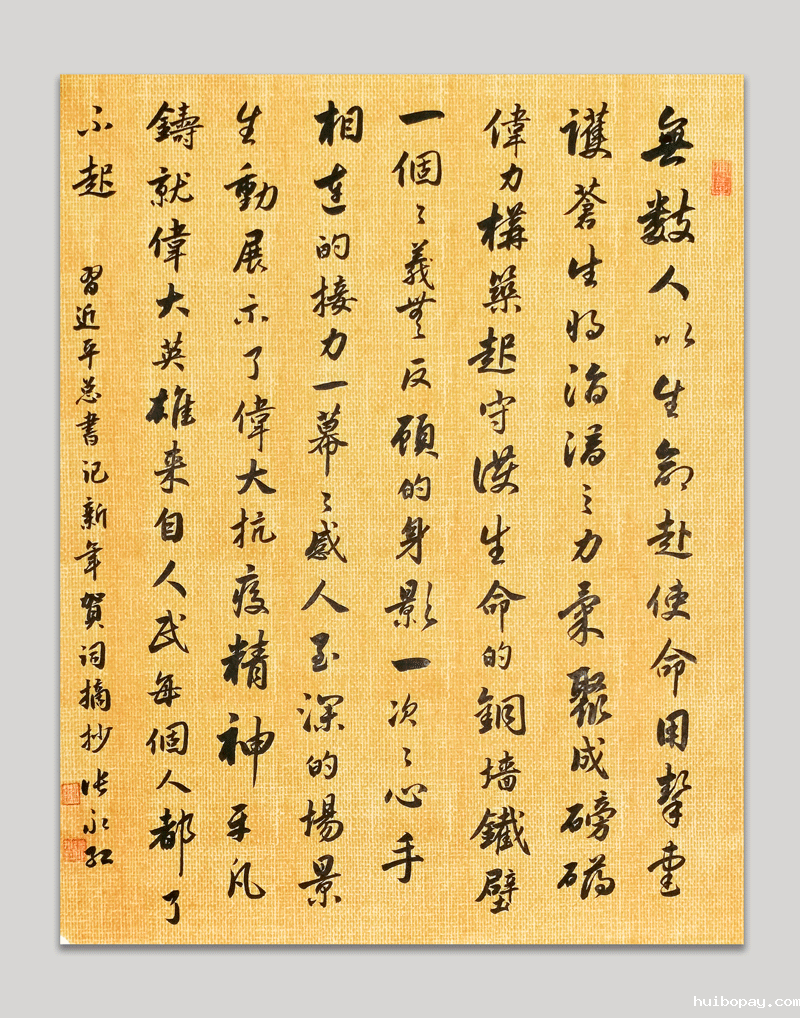 無数人以生命赴使命用摯愛
護蒼生将涓滴之力彙聚成磅礴
偉力構築起守護生命的銅墙鐵壁
一個々義無反顧的身影一次々心手
相連的接力一幕々感人至深的場景
生動展示了偉大抗疫精神平凡
鑄就偉大英雄来自人民每個人都了
不起
習近平总書記新年賀词摘抄 张永红
huibopay.com